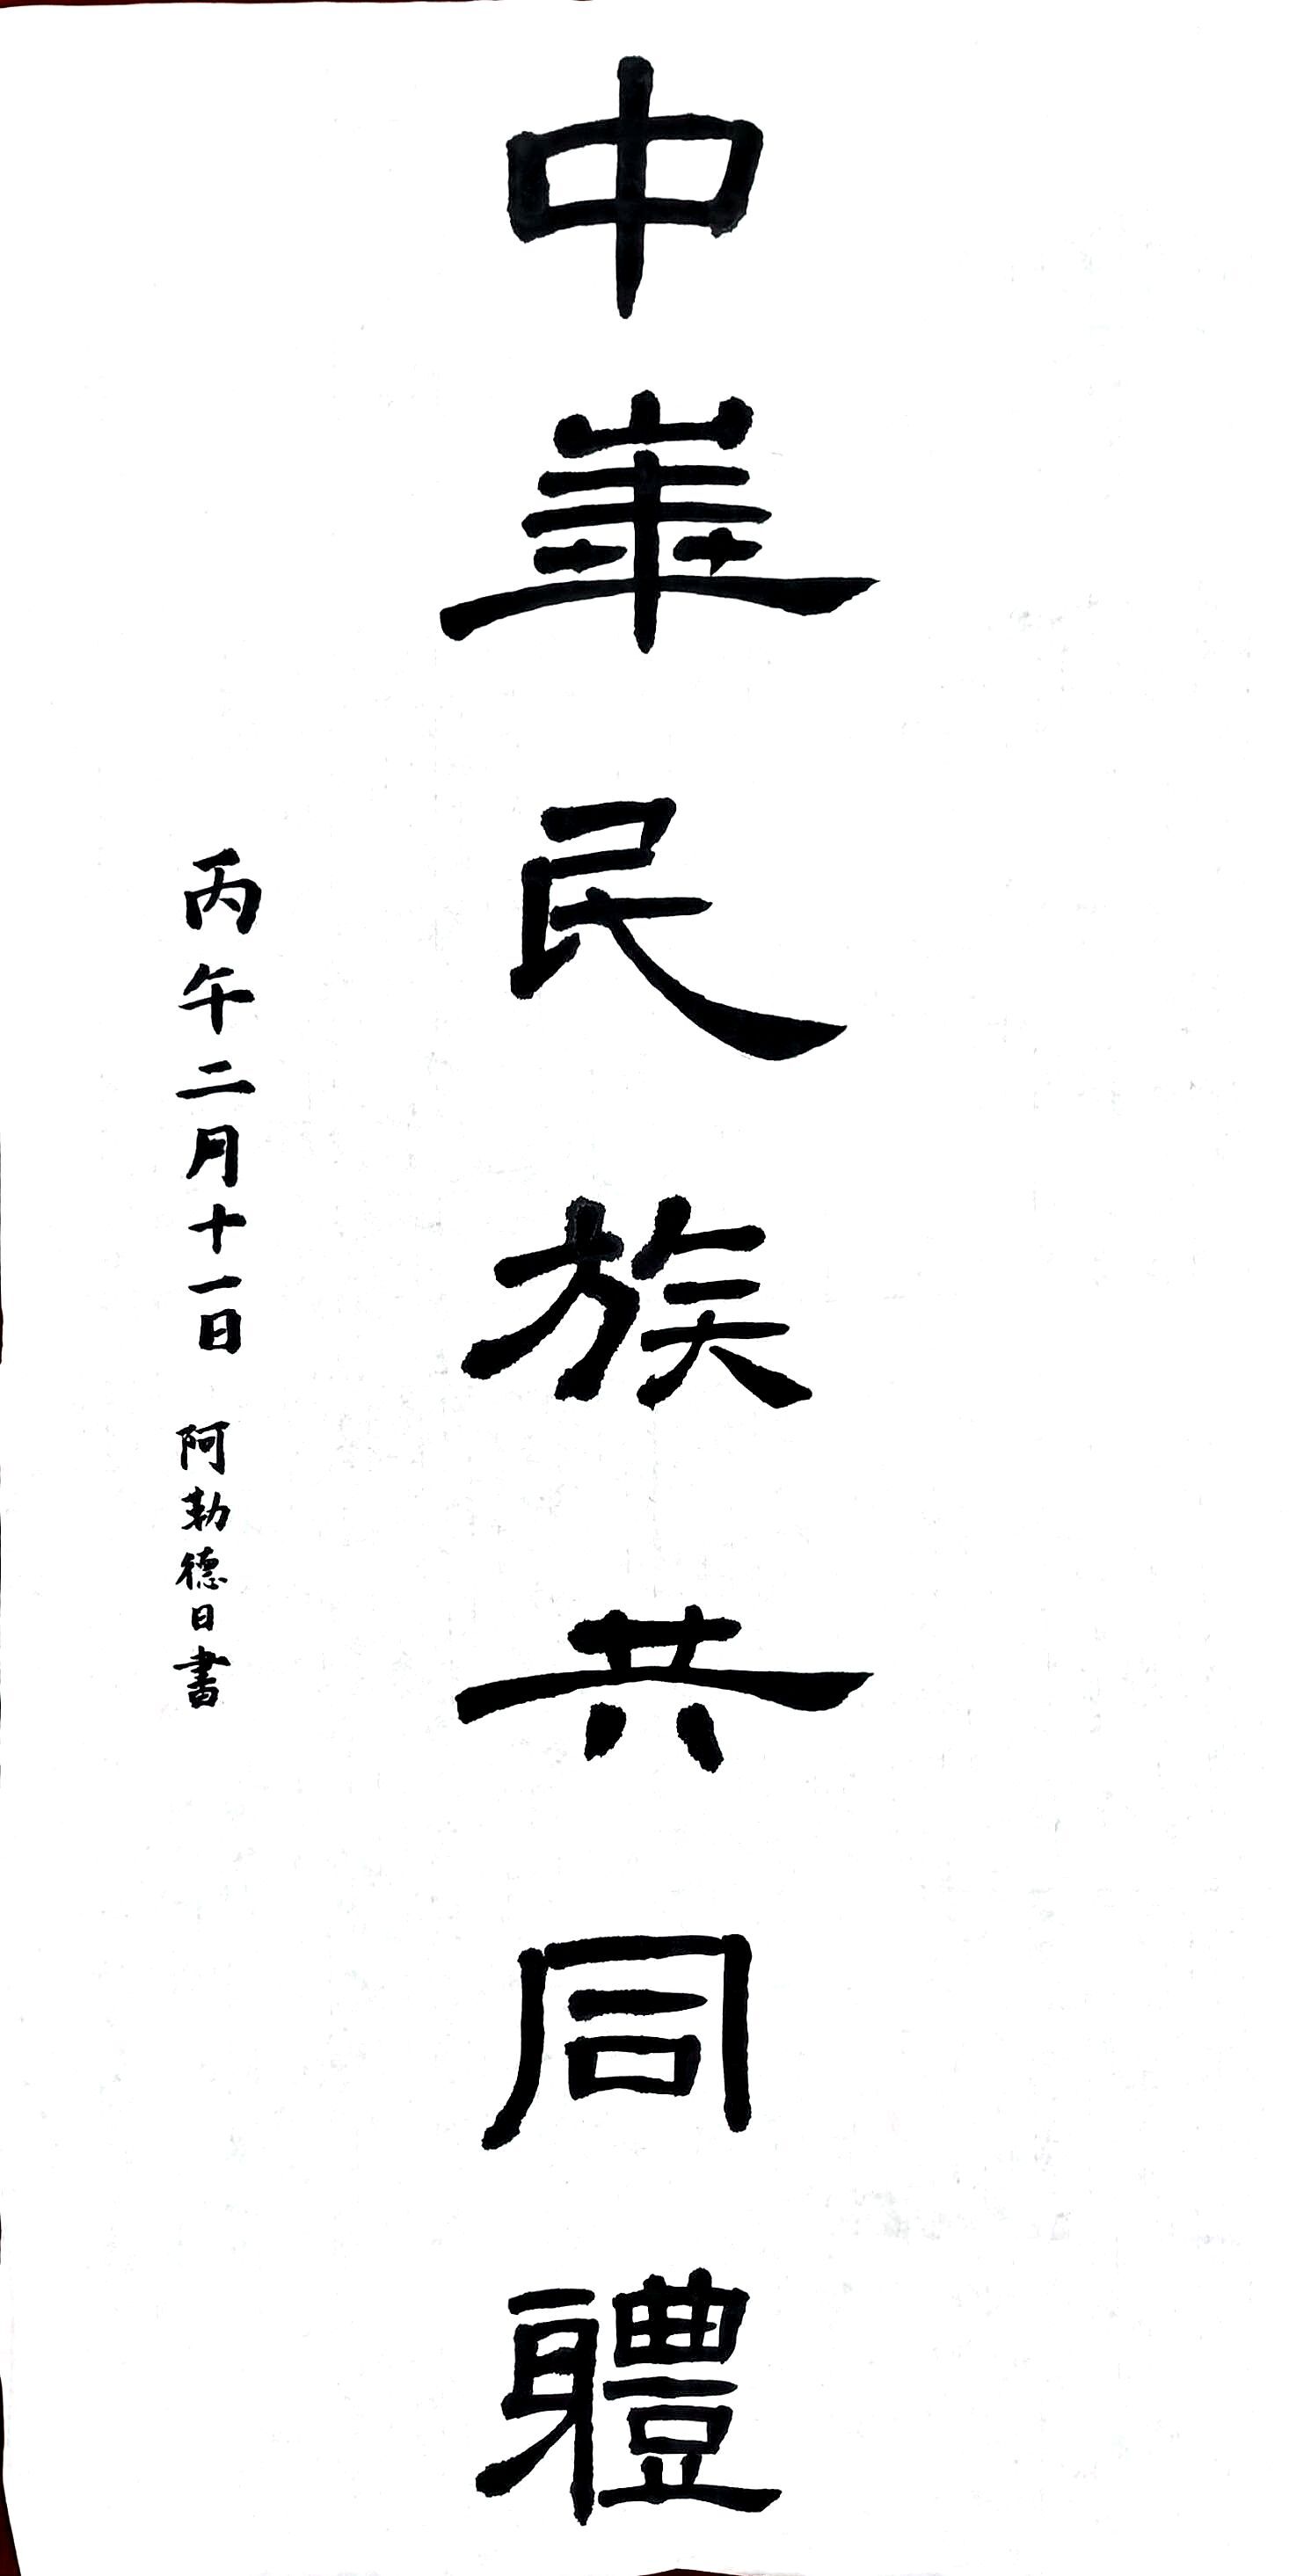 中華民族共同軆
丙午二月十一日 阿勒德日書